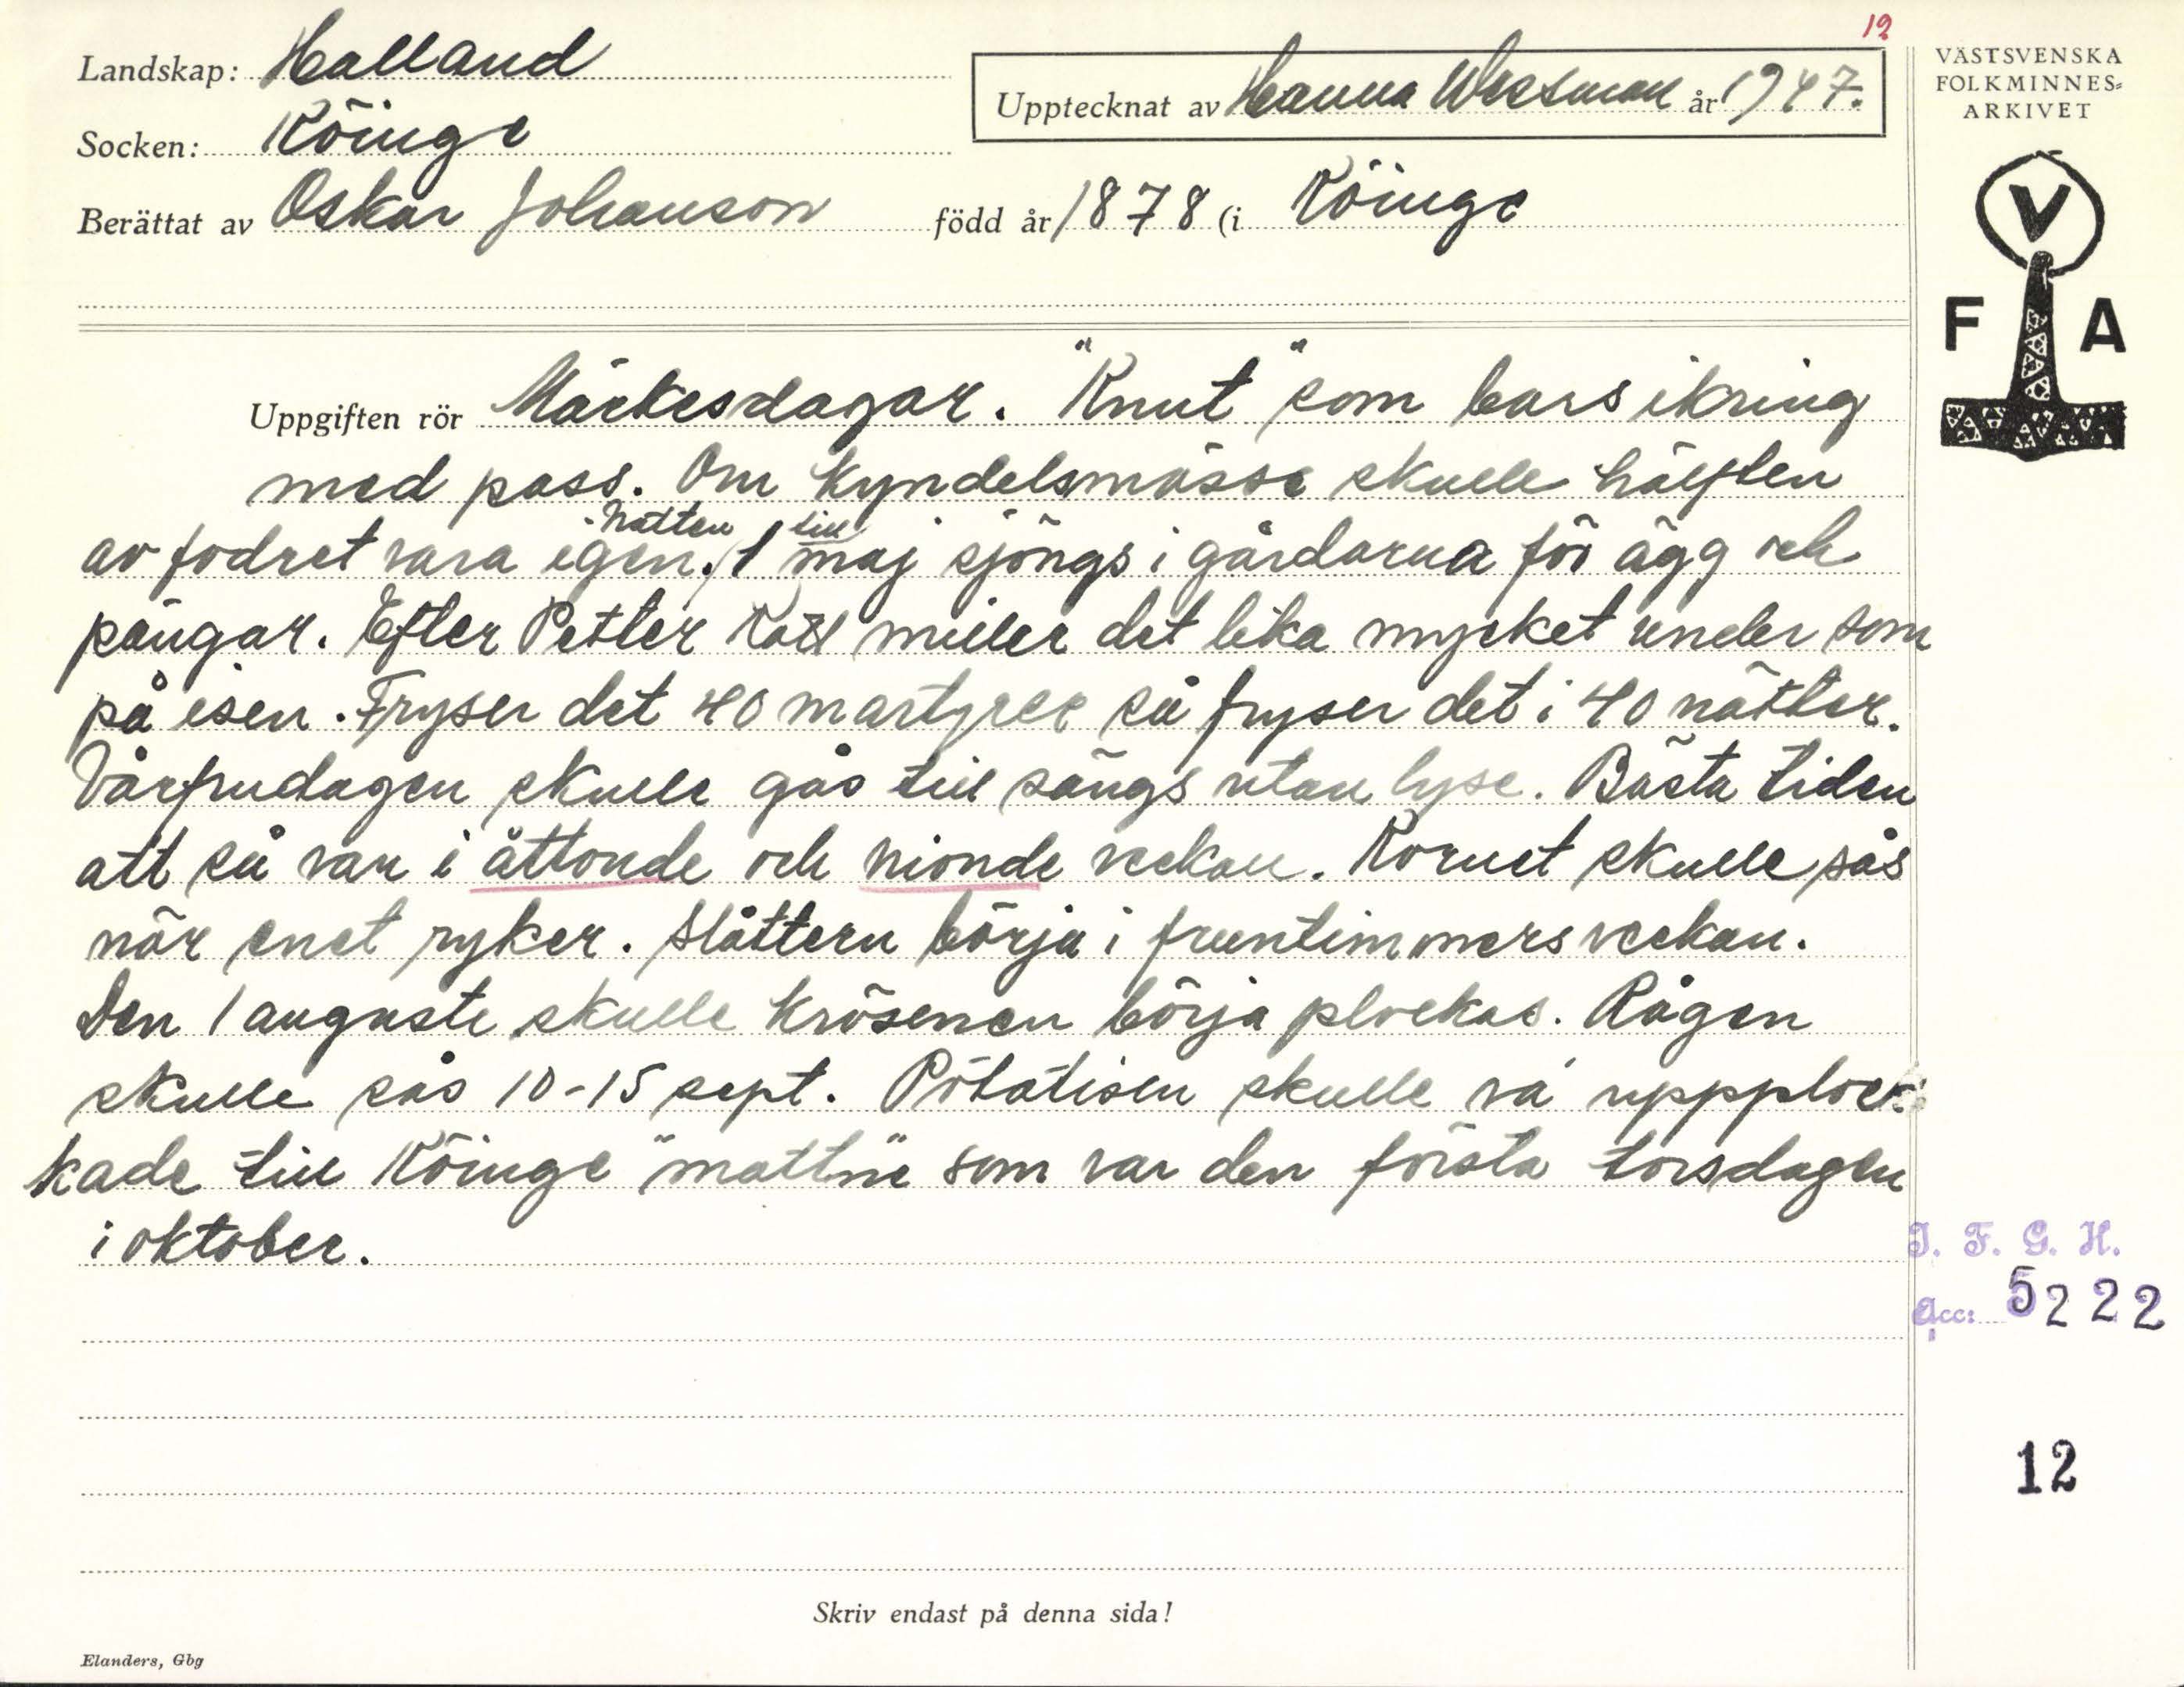 12
Landskap: Halland
Socken: Köinge
Upptecknat av Hanna Wessman år 1947.
Berättat av Oskar Johanson född år 1878 (i Köinge
VÄSTSVENSKA
FOLKMINNES-
ARKIVET
V
F A
Uppgiften rör Märkesdagar. "Knut" som bars ikring
med pass. Om Kyndelsmässe skulle hälften
av fodret vara igen. Natten till 1 maj sjöngs i gårdarna för ägg och
pängar. Efter Petter Katt smiler det lika mycket under som
på isen. Fryser det 40 martyrer så fryser det i 40 nätter.
Vårfrudagen skulle gås till sängs utan lyse. Bästa tiden
att så var i åttonde och nionde veckan. Kornet skulle sås
när enet ryker. Slåttern börja i fruentimmersveckan.
Den 1 augusti skulle krösenen börja plockas. Rågen
skulle sås 10-15 sept. Pötätisen skulle va uppplock-
kade till Köinge "mattne" som var den första torsdagen
i oktober.
I. F. G. H.
Acc: 5222
12
Skriv endast på denna sida!
Elanders, Gbg